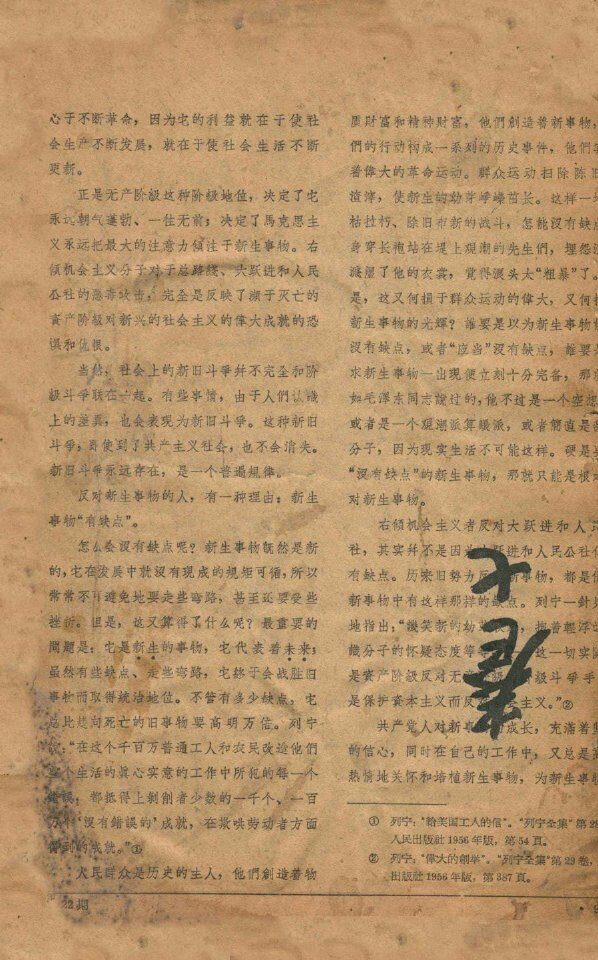 心于不断革命，因为它的利益就在于使社
会生产不断发展，就在于使社会生活不断
更新。
正是无产阶级这种阶级地位，决定了它
永远朝气蓬勃、一往无前；决定了馬克思主
义永远把最大的注意力傾注于新生事物。右
傾机会主义分子对于总路綫、大跃进和人民
公社的恶毒攻击，完全是反映了瀕于灭亡的
資产阶級对新兴的社会主义的偉大成就的恐
惧和仇恨。
当然，社会上的新旧斗爭并不完全和阶
級斗爭联在一起。有些事情，由于人們认識
上的差異，也会表现为新旧斗爭。这种新旧
斗爭，卽使到了共产主义社会，也不会消失。
新旧斗爭永远存在，是一个普遍規律。
反对新生事物的人，有一种理由：新生
事物“有缺点”。
怎么会沒有缺点呢？新生事物旣然是新
的，它在发展中就沒有现成的規矩可循，所以
常常不可避免地要走些弯路，甚至还要受些
挫折。但是，这又算得了什么呢？最重要的
問題是：它是新生的事物，它代表着未来；
虽然有些缺点、走些弯路，它终于会战胜旧
事物而取得統治地位。不管有多少缺点，它
总比趋向死亡的旧事物要高明万倍。列宁
：“在这个千百万普通工人和农民改造他們
个生活的眞心实意的工作中所犯的每一个
都抵得上剝削者少数的一千个、一百
‘沒有錯誤的’成就，在欺哄劳动者方面
得到的成就。”①
人民群众是历史的主人，他們創造着物
22期
质財富和精神財富，他們創造着新事物，
們的行动构成一系列的历史事件，他們
着偉大的革命运动。群众运动扫除陈旧
渣滓，使新生的幼芽崢嶸茁长。这样一
枯拉朽、除旧布新的战斗，怎能沒有缺点
身穿长袍站在堤上观潮的先生們，埋怨浪
濺湿了他的衣裳，觉得浪头太“粗暴”了。
是，这又何損于群众运动的偉大，又何損
新生事物的光輝？誰要是以为新生事物
沒有缺点，或者“应当”沒有缺点，誰要
求新生事物一出现便立刻十分完备，那
如毛泽东同志說过的，他不过是一个空想
或者是一个观潮派算賬派，或者簡直是
分子，因为现实生活不可能这样。硬是
“沒有缺点”的新生事物，那就只能是根本
对新生事物。
右傾机会主义者反对大跃进和人民
社，其实幷不是因为大跃进和人民公社
有缺点。历来旧势力反对新事物，都是
新事物中有这样那样的缺点。列宁一針
地指出，“譏笑新的幼芽
識分子的怀疑态度等 这一切实
是資产阶級反对无 阶級斗爭手
是保护資本主义而反 主义。”②
共产党人对新事 成长，充滿着
的信心，同时在自己的工作中，又总是
热情地关怀和培植新生事物，为新生事
① 列宁：“給美国工人的信”。“列宁全集”第28
人民出版社1956年版，第54頁。
② 列宁：“偉大的創举”。“列宁全集”第29卷，
出版社1956年版，第387頁。